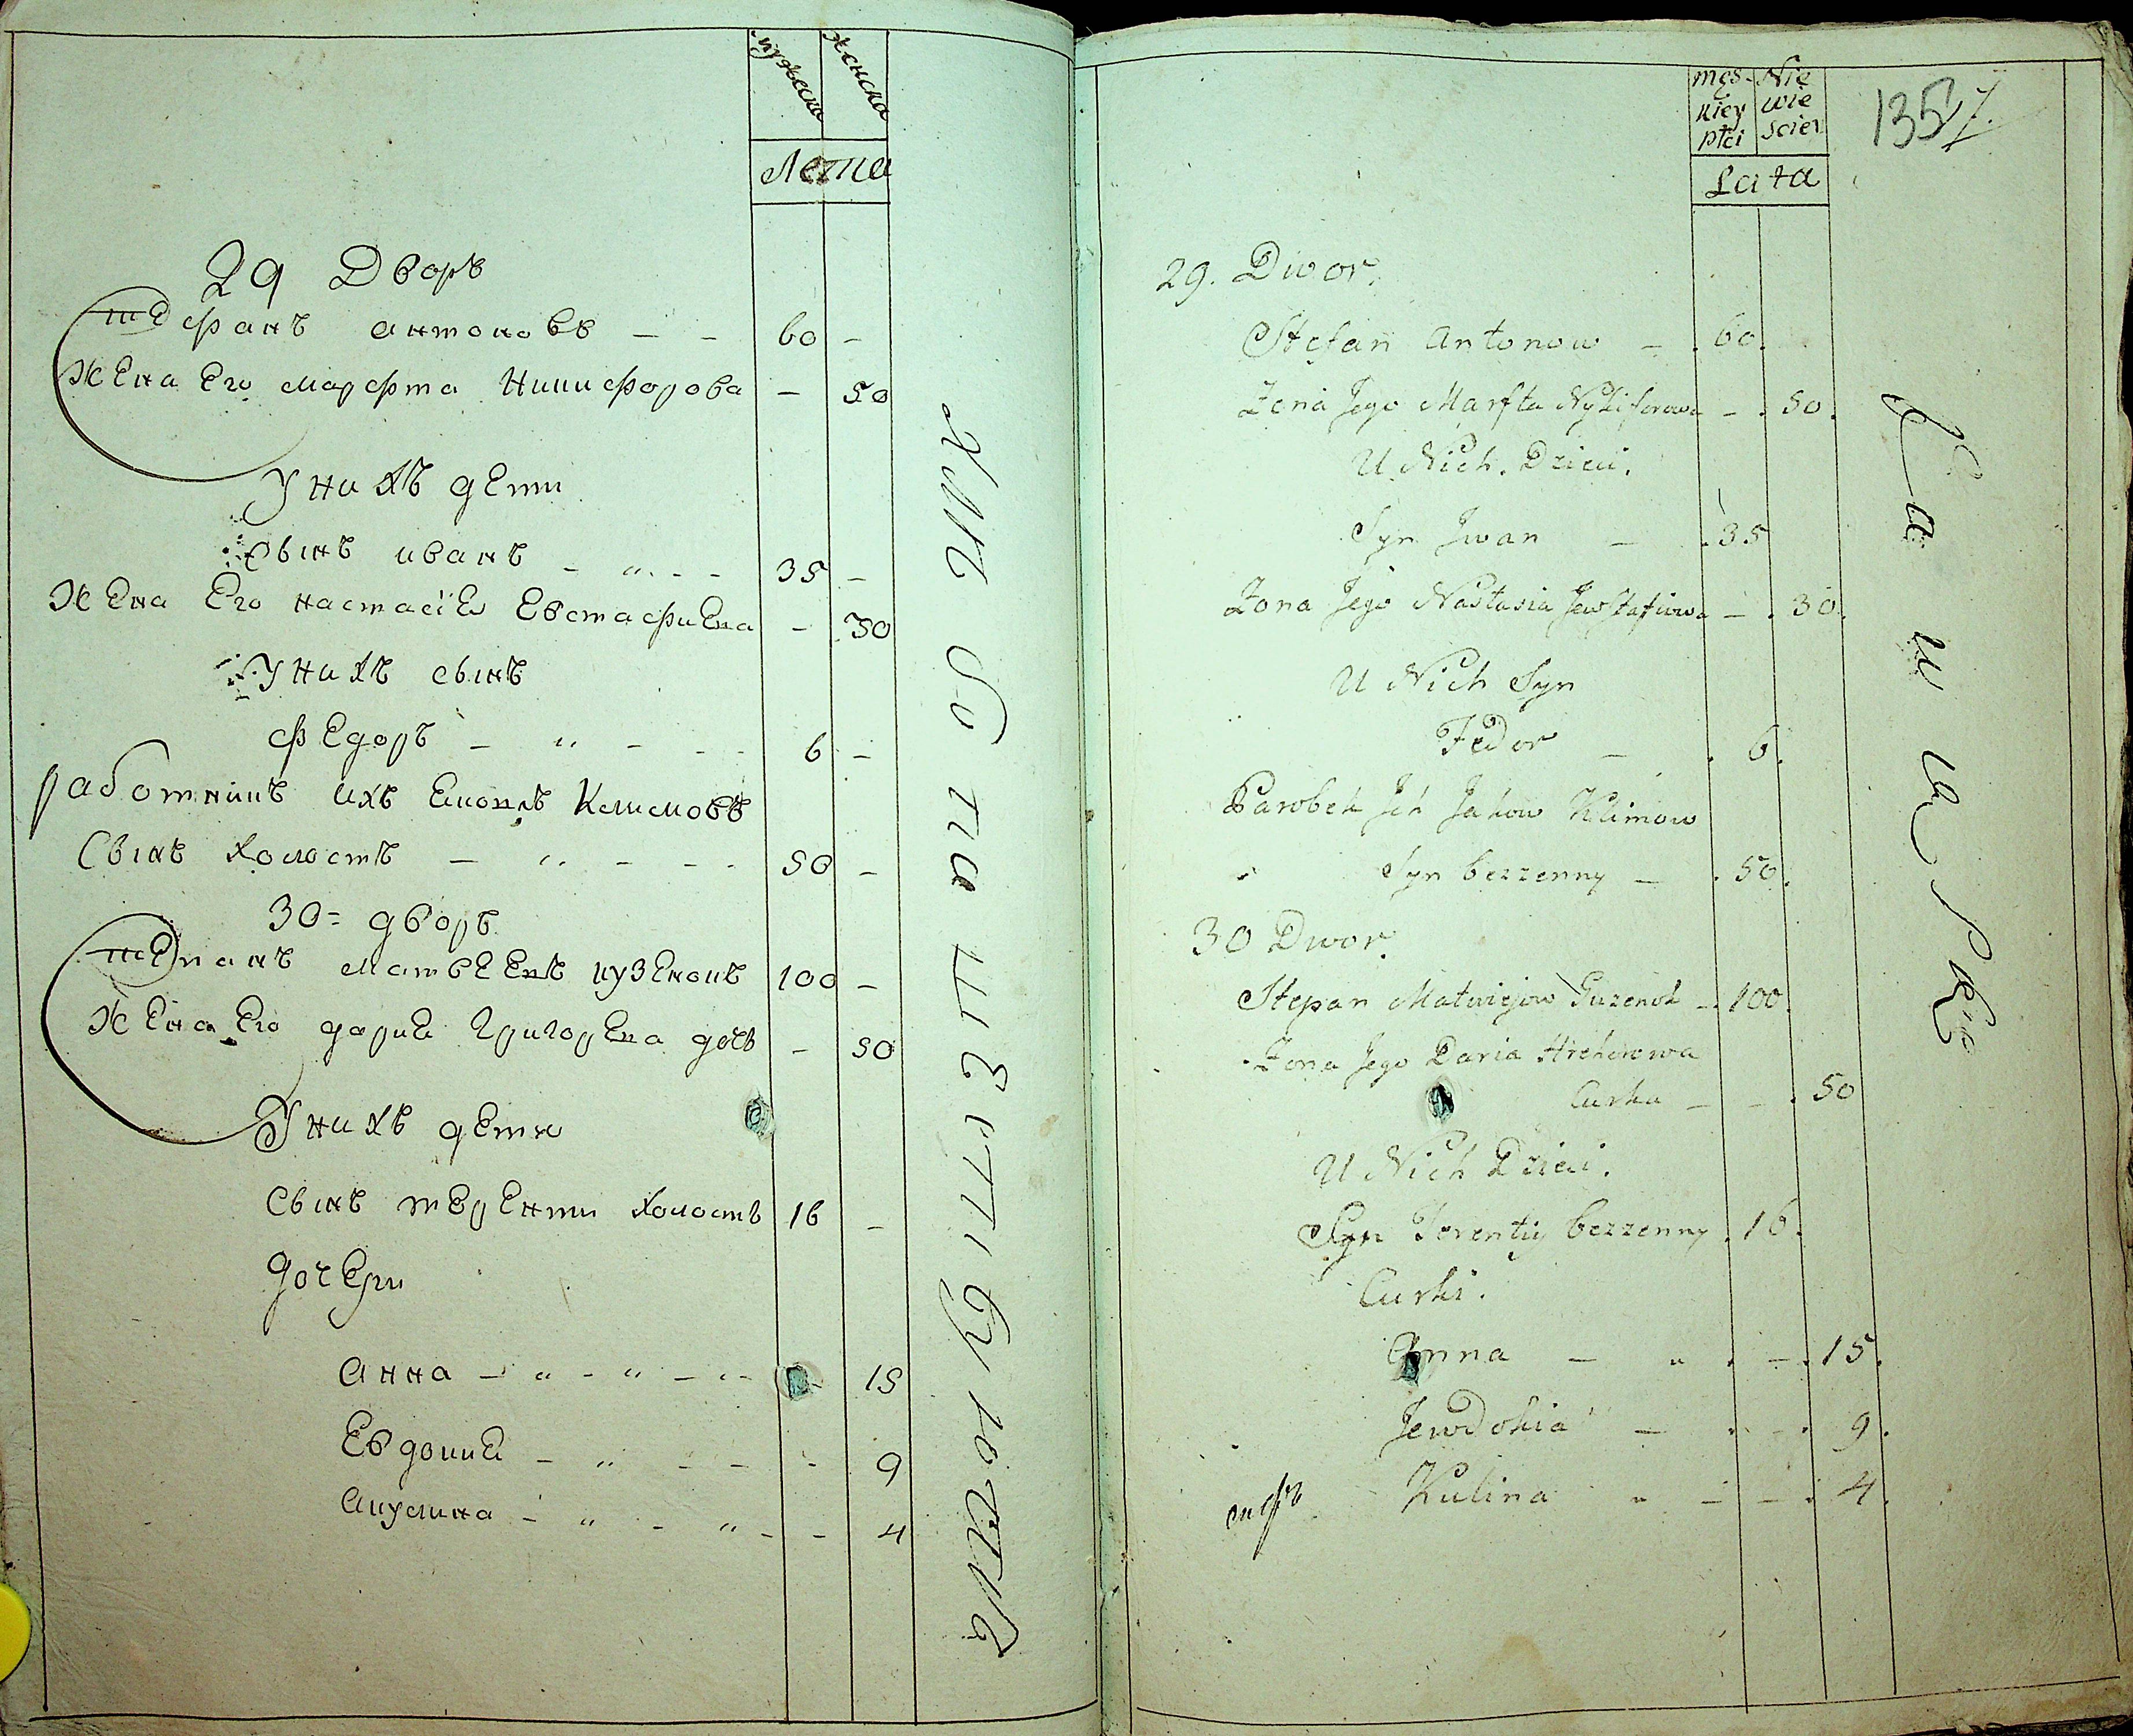 мужеска женска
Лета
29 Дворъ
Стефанъ антоновъ 60 -
Жена Его марфта Никифорова - 50
У нихъ дети
Сынъ иванъ 35 -
Жена Его настасіе Евстафиева - 30
У нихъ сынъ
федоръ 6 -
работникъ ихъ Ековъ Климовъ
Сынъ холостъ 50 -
30 = дворъ
Степанъ Матвеевъ кузенокъ 100 -
Жена Его дарие Григорева дочь - 50
У нихъ дети
Сынъ терентии холостъ 16 -
Дочери
Анна - 15
Евдокие - 9
Акулина - 4
męs-kiey płci Nie wie sciey
Lata
1357.
29. Dwor.
Stefan Antonow - 60.
Zona Jego Marfta Nykiforowa - 50.
U Nich. Dzieci.
Syn Jwan - 35
Zona Jego Nastasia Jewstafiwa - 30.
U Nich Syn
Fedor - 6.
Parobek Jch Jakow Klimow
Syn bezzenny - 50.
30 Dwor.
Stepan Matwiejow Guzenok - 100.
Zona Jego Daria Hrehorowa
Curka - 50
U Nich Dzieci.
Syn Terentij bezzenny 16.
Curki.
Anna - 15.
Jewdokia - 9.
Kulina - 4.